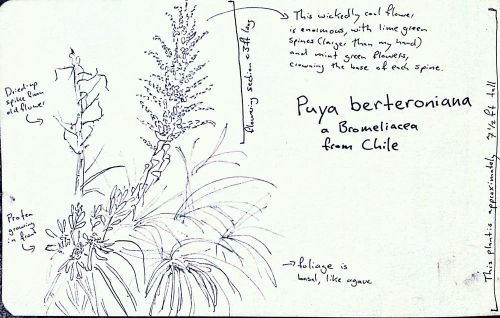 This wickedly cool flower
is enormous, with lime green
spines (larger than my hand)
and mint green flowers,
crowning the base of each spine.
flowering section c 3 ft long
Dried-up
spike from
old flower
Puya berteroniana
a Bromeliacea
from Chile
Protea
growing
in front
foliage is
basal, like agave
This plant is approximately 7 1/2 ft tall